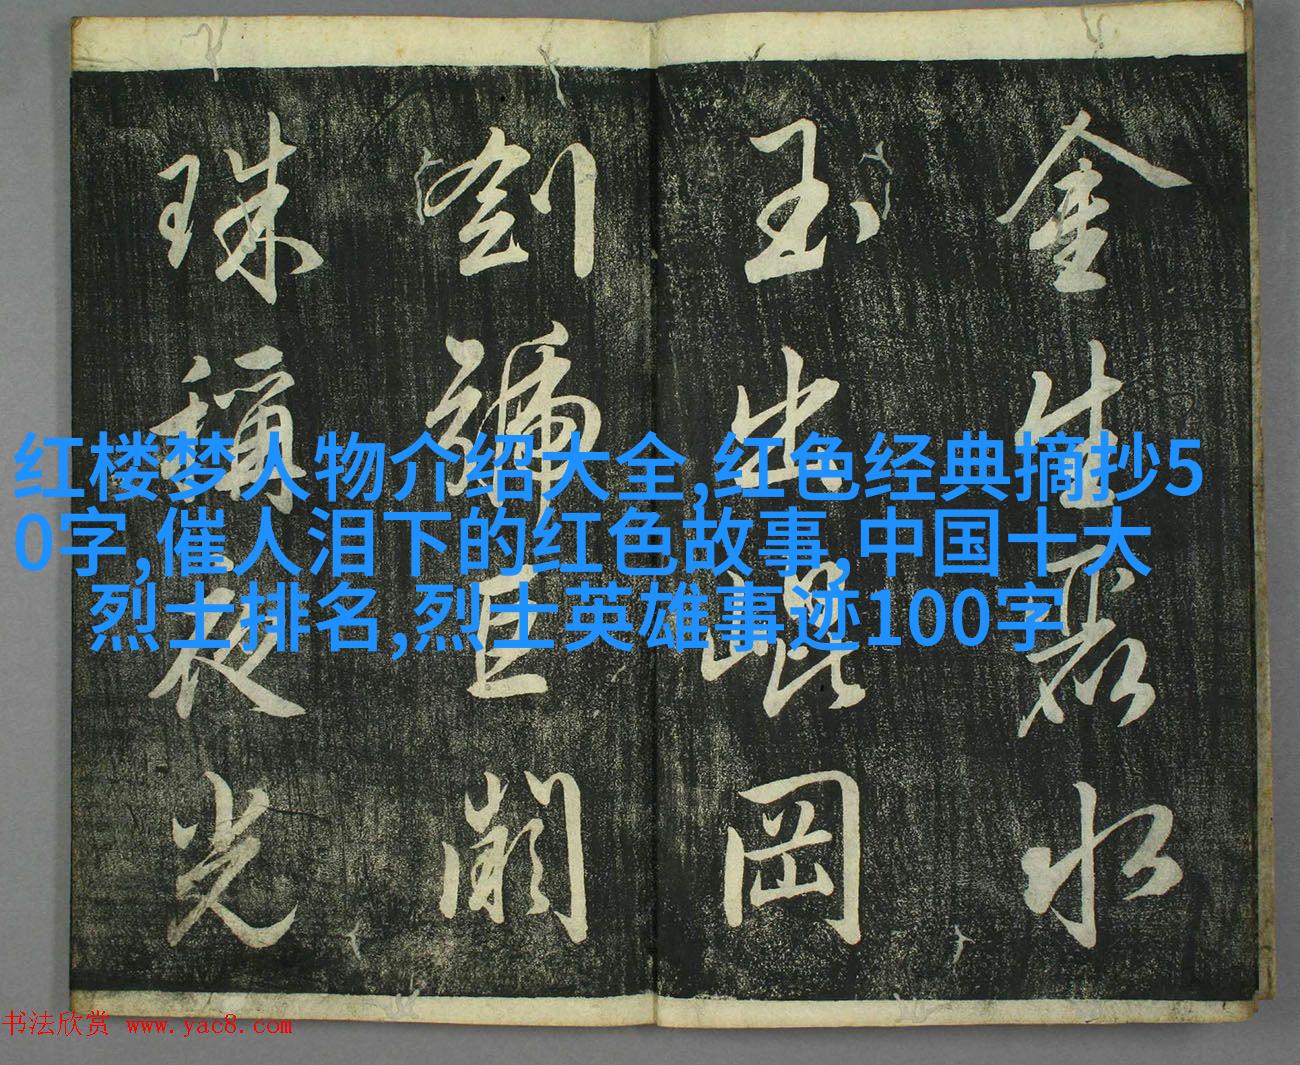 金生麗水
玉出崐岡
劍號巨闕
珠稱夜光
红楼梦人物介绍大全,红色经典摘抄5
0字,催人泪下的红色故事,中国十大
烈士排名,烈士英雄事迹100字
书法欣赏 www.yac8.com